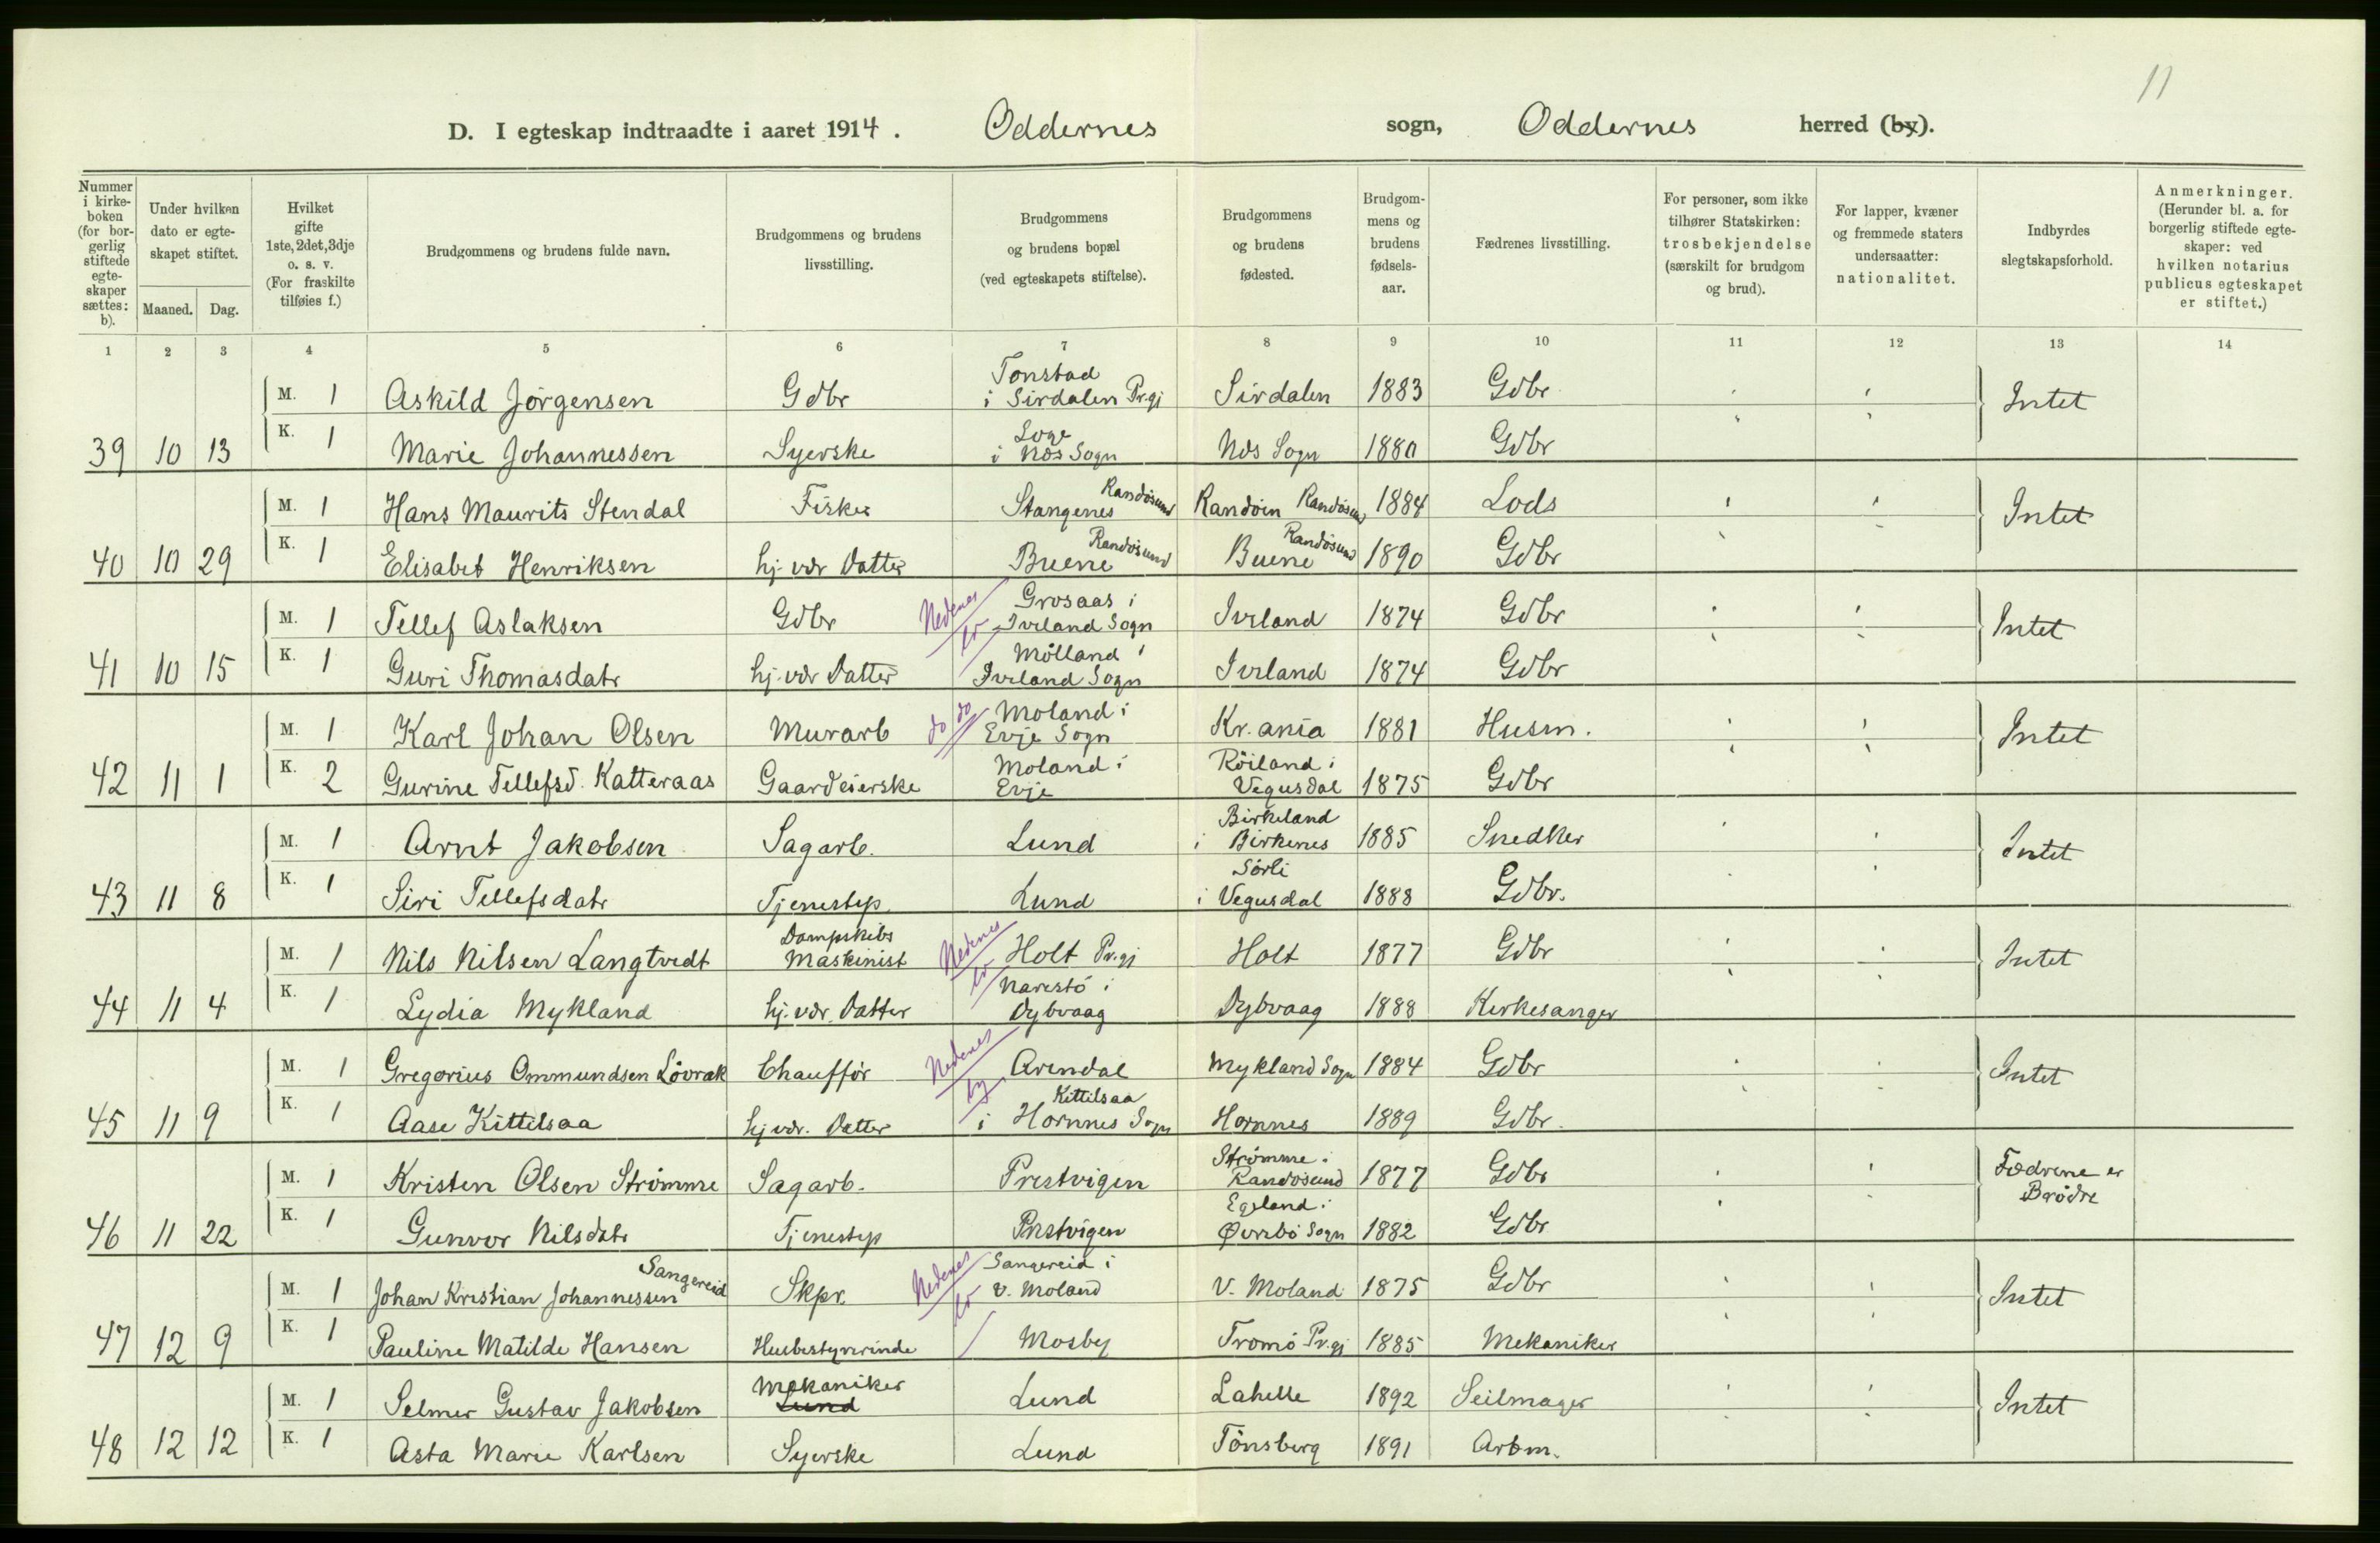 11
D. I egteskap indtraadte i aaret 1914. Oddernes sogn, Oddernes herred (by).
Nummer i kirkeboken (for borgerlig stiftede egteskaper sættes: b).
Under hvilken dato er egteskapet stiftet.
Maaned. Dag.
Hvilket gifte 1ste, 2det, 3dje o. s. v. (For fraskilte tilføies f.)
Brudgommens og brudens fulde navn.
Brudgommens og brudens livsstilling.
Brudgommens og brudens bopæl (ved egteskapets stiftelse).
Brudgommens og brudens fødested.
Brudgommens og brudens fødselsaar.
Fædrenes livsstilling.
For personer, som ikke tilhører Statskirken: trosbekjendelse (særskilt for brudgom og brud).
For lapper, kvæner og fremmede staters undersaatter: nationalitet.
Indbyrdes slegtskapsforhold.
Anmerkninger. (Herunder bl. a. for borgerlig stiftede egteskaper: ved hvilken notarius publicus egteskapet er stiftet.)
1 2 3 4 5 6 7 8 9 10 11 12 13 14
M. 1 Askild Jörgensen Gdbr Tonstad i Sirdalen Prgj Sirdalen 1883 Gdbr Intet
39 10 13 K. 1 Marie Johannessen Syerske i Nes Sogn Nes Sogn 1880 Gdbr
M. 1 Hans Maurits Stendal Fisker Stangenes Randösund Randöen Randösund 1884 Lods Intet
40 10 29 K. 1 Elisabet Henriksen hj. vær Datter Buene Randösund Buene Randösund 1890 Gdbr
M. 1 Tellef Aslaksen Gdbr Nedenes Grosaas i Iveland Sogn Iveland 1874 Gdbr Intet
41 10 15 K. 1 Guri Thomasdatr hj. vær Datter Mölland i Iveland Sogn Iveland 1874 Gdbr
M. 1 Karl Johan Olsen Murarb do do Moland i Evje Sogn Kr.ania 1881 Husm. Intet
42 11 1 K. 2 Gurine Tellefsd. Katteraas Gaardeierske Moland i Evje Röiland i Vegusdal 1875 Gdbr
M. 1 Arnt Jakobsen Sagarb. Lund Birkeland i Birkenes 1885 Snedker Intet
43 11 8 K. 1 Siri Tellefsdatr Tjenestep. Lund Sörli i Vegusdal 1888 Gdbr.
M. 1 Nils Nilsen Langtvedt Dampskibs Maskinist Nedenes Holt Pr.gj Holt 1877 Gdbr Intet
44 11 4 K. 1 Lydia Mykland hj. vær. Datter Narestö i Dybvaag Dybvaag 1888 Kirkesanger
M. 1 Gregorius Ommundsen Lövrak Chaufför Nedenes by Arendal Mykland Sogn 1884 Gdbr Intet
45 11 9 K. 1 Aase Kittelsaa hj vær. Datter Kittilsaa i Hornnes Sogn Hornnes 1889 Gdbr.
M. 1 Kristen Olsen Strömme Sagarb. Prestvigen Strömme i Randösund 1877 Gdbr Fædrene er Brödre
46 11 22 K. 1 Gunvor Nilsdatr Tjenestep Prestvigen Egeland i Øvrebö Sogn 1882 Gdbr
M. 1 Johan Kristian Johannessen Sangereid Skpr. Nedenes Sangereid i V. Moland V. Moland 1875 Gdbr Intet
47 12 9 K. 1 Pauline Matilde Hansen Husbestyrerinde Mosby Tromö Pr.gj 1885 Mekaniker
M. 1 Selmer Gustav Jakobsen Mekaniker Lund Lund Lahelle 1892 Seilmager Intet
48 12 12 K. 1 Asta Marie Karlsen Syerske Lund Tönsberg 1891 Arbm.